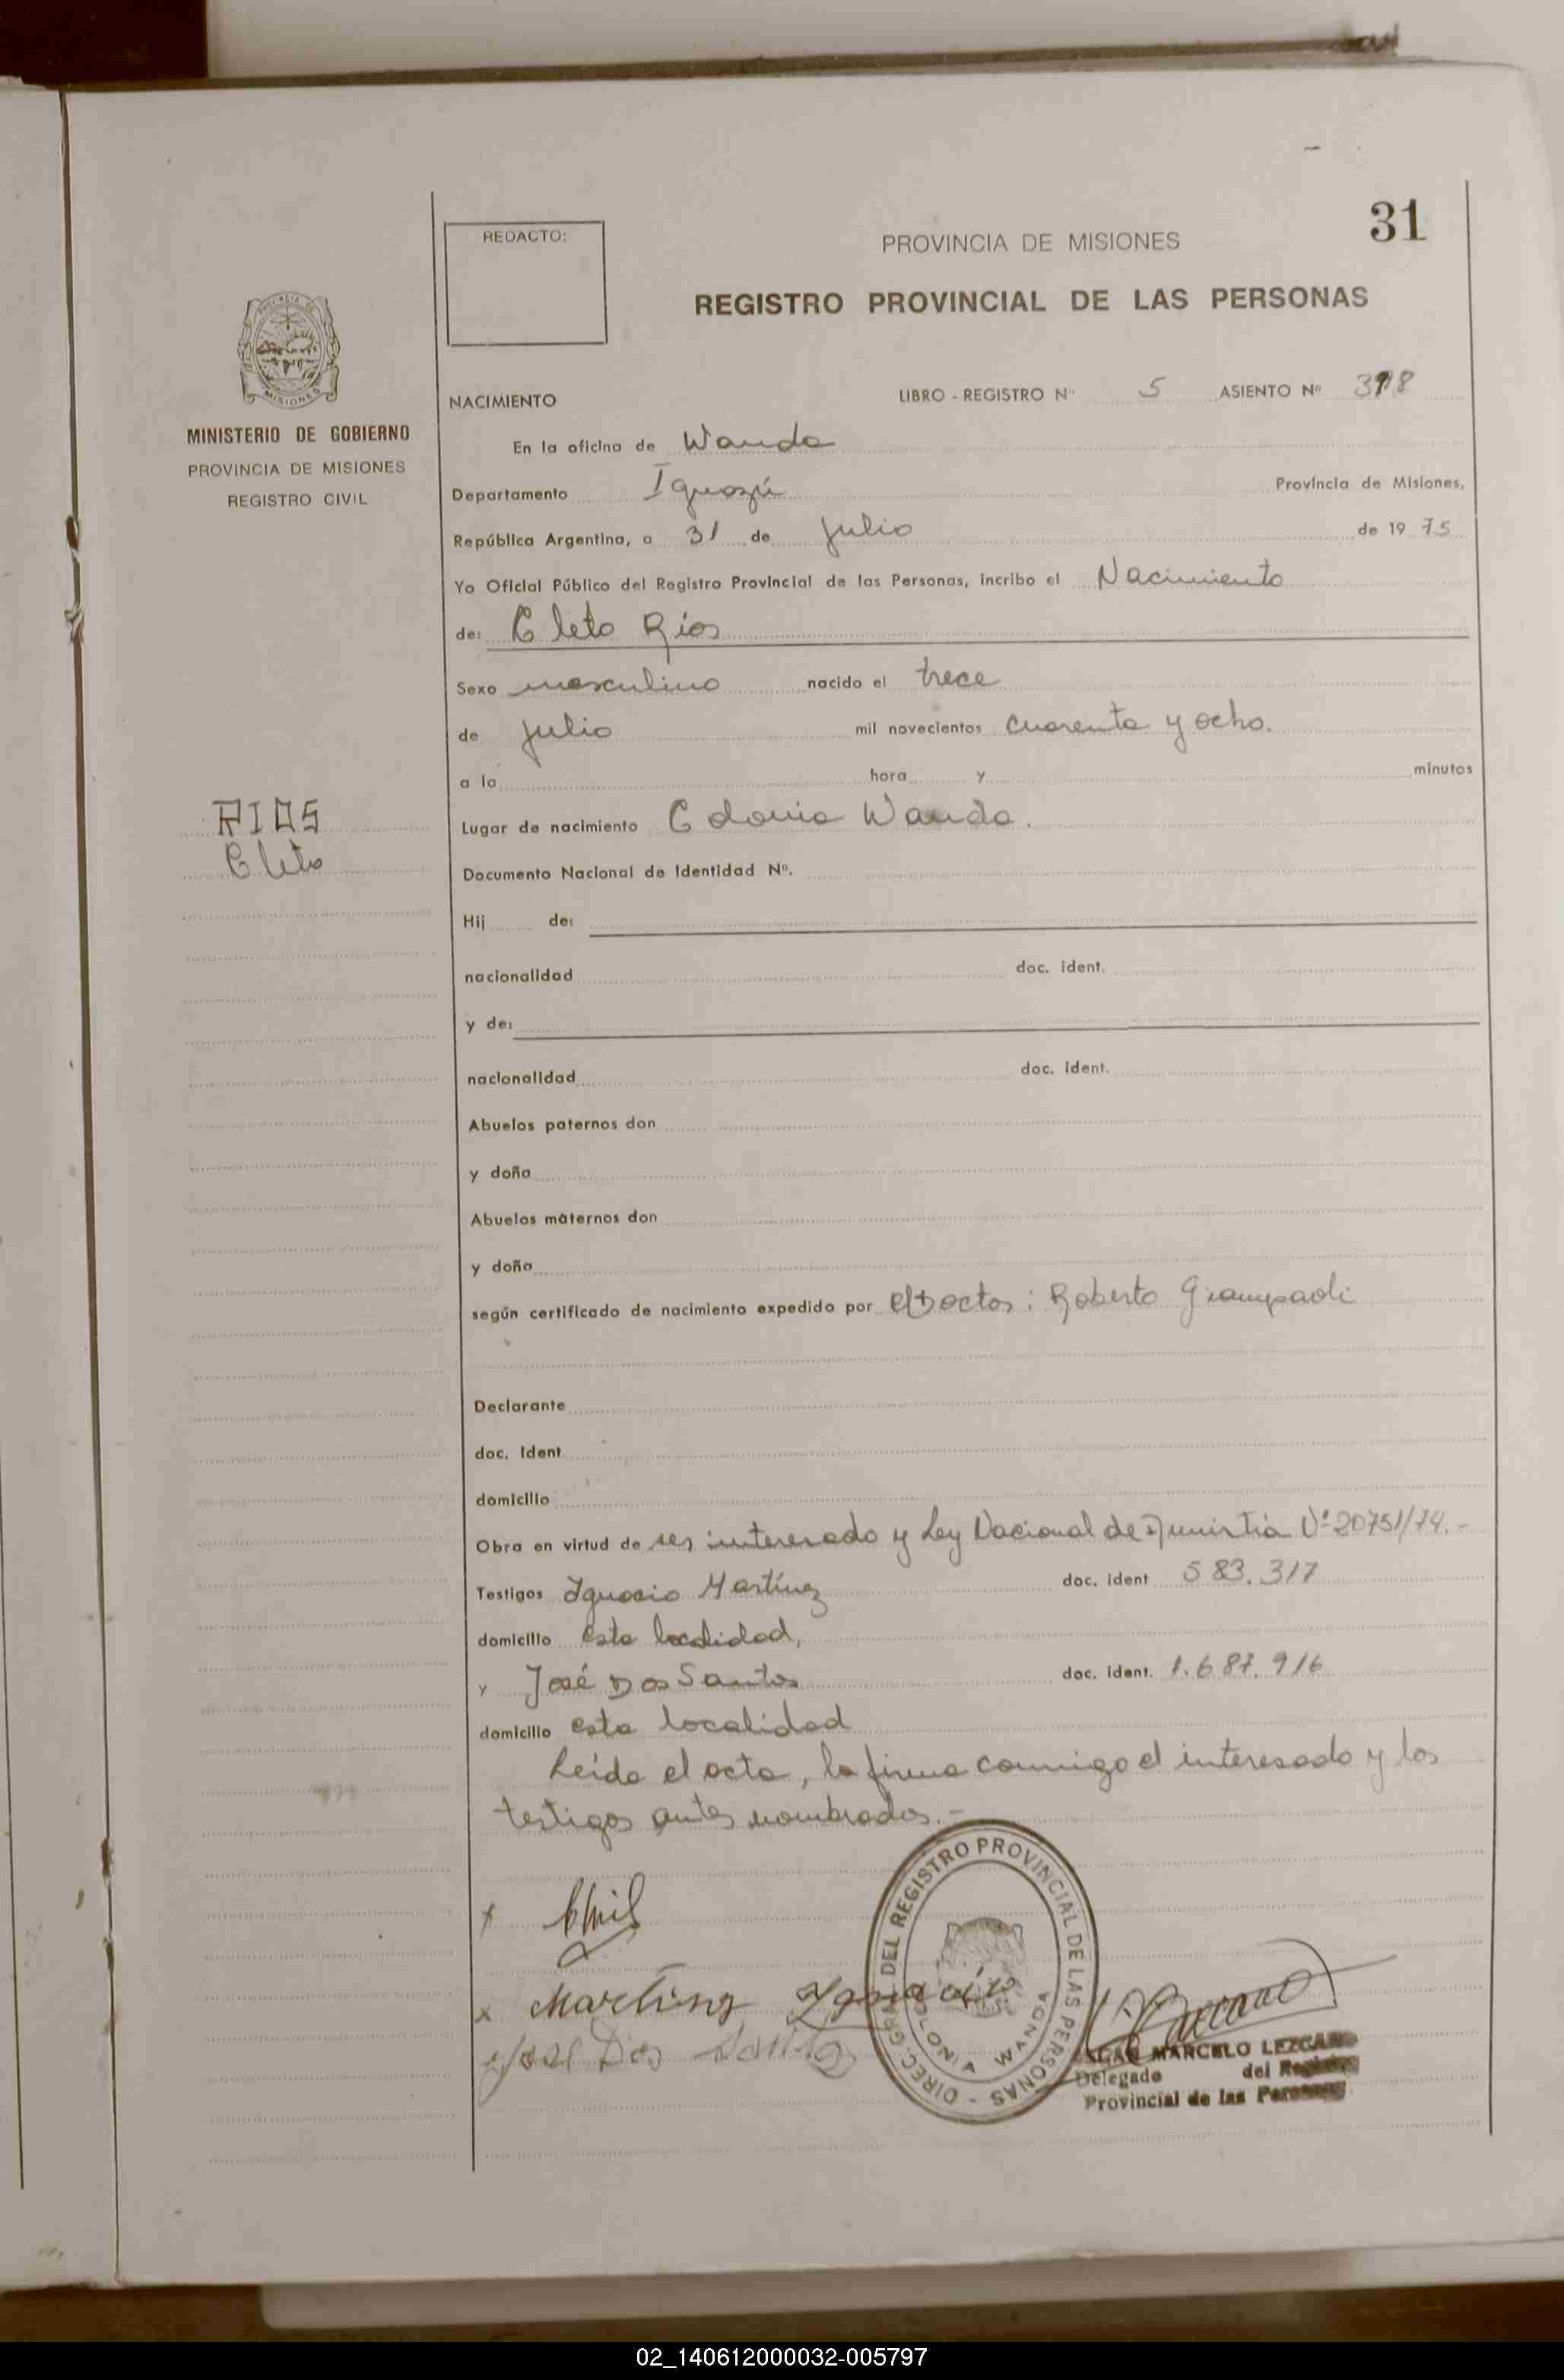 31
REDACTO:
PROVINCIA DE MISIONES
REGISTRO PROVINCIAL DE LAS PERSONAS
MINISTERIO DE GOBIERNO
PROVINCIA DE MISIONES
REGISTRO CIVIL
NACIMIENTO LIBRO - REGISTRO Nº 5 ASIENTO Nº
En la oficina de Wanda
Departamento Iguazú Provincia de Misiones,
República Argentina, a 31 de Julio de 1975
Yo Oficial Público del Registro Provincial de las Personas, incribo el Nacimiento
de: Cleto Ríos
Sexo masculino nacido el trece
de Julio mil novecientos cuarenta y ocho.
a la hora y minutos
RIOS
Cleto
Lugar de nacimiento Colonia Wanda.
Documento Nacional de Identidad Nº.
Hij de:
nacionalidad doc. ident.
y de:
nacionalidad doc. ident.
Abuelos paternos don
y doña
Abuelos maternos don
y doña
según certificado de nacimiento expedido por el Doctor: Roberto Giampaoli
Declarante
doc. Ident
domicilio
Obra en virtud de ser interesado y Ley Nacional de Amnistia Nº 20751/74.-
Testigos Ignacio Martínez doc. ident 583.317
domicilio esta localidad,
y José Dos Santos doc. ident. 1.687.916
domicilio esta localidad
Leida el acta, la firma conmigo el interesado y los
testigos antes nombrados.-
x
x Martinez Ignacio
José Dos Santos
DIREC. GRAL. DEL REGISTRO PROVINCIAL DE LAS PERSONAS -
COLONIA WANDA
MARCELO LEZCANO
Delegado del Registro
Provincial de las Personas
02_140612000032-005797